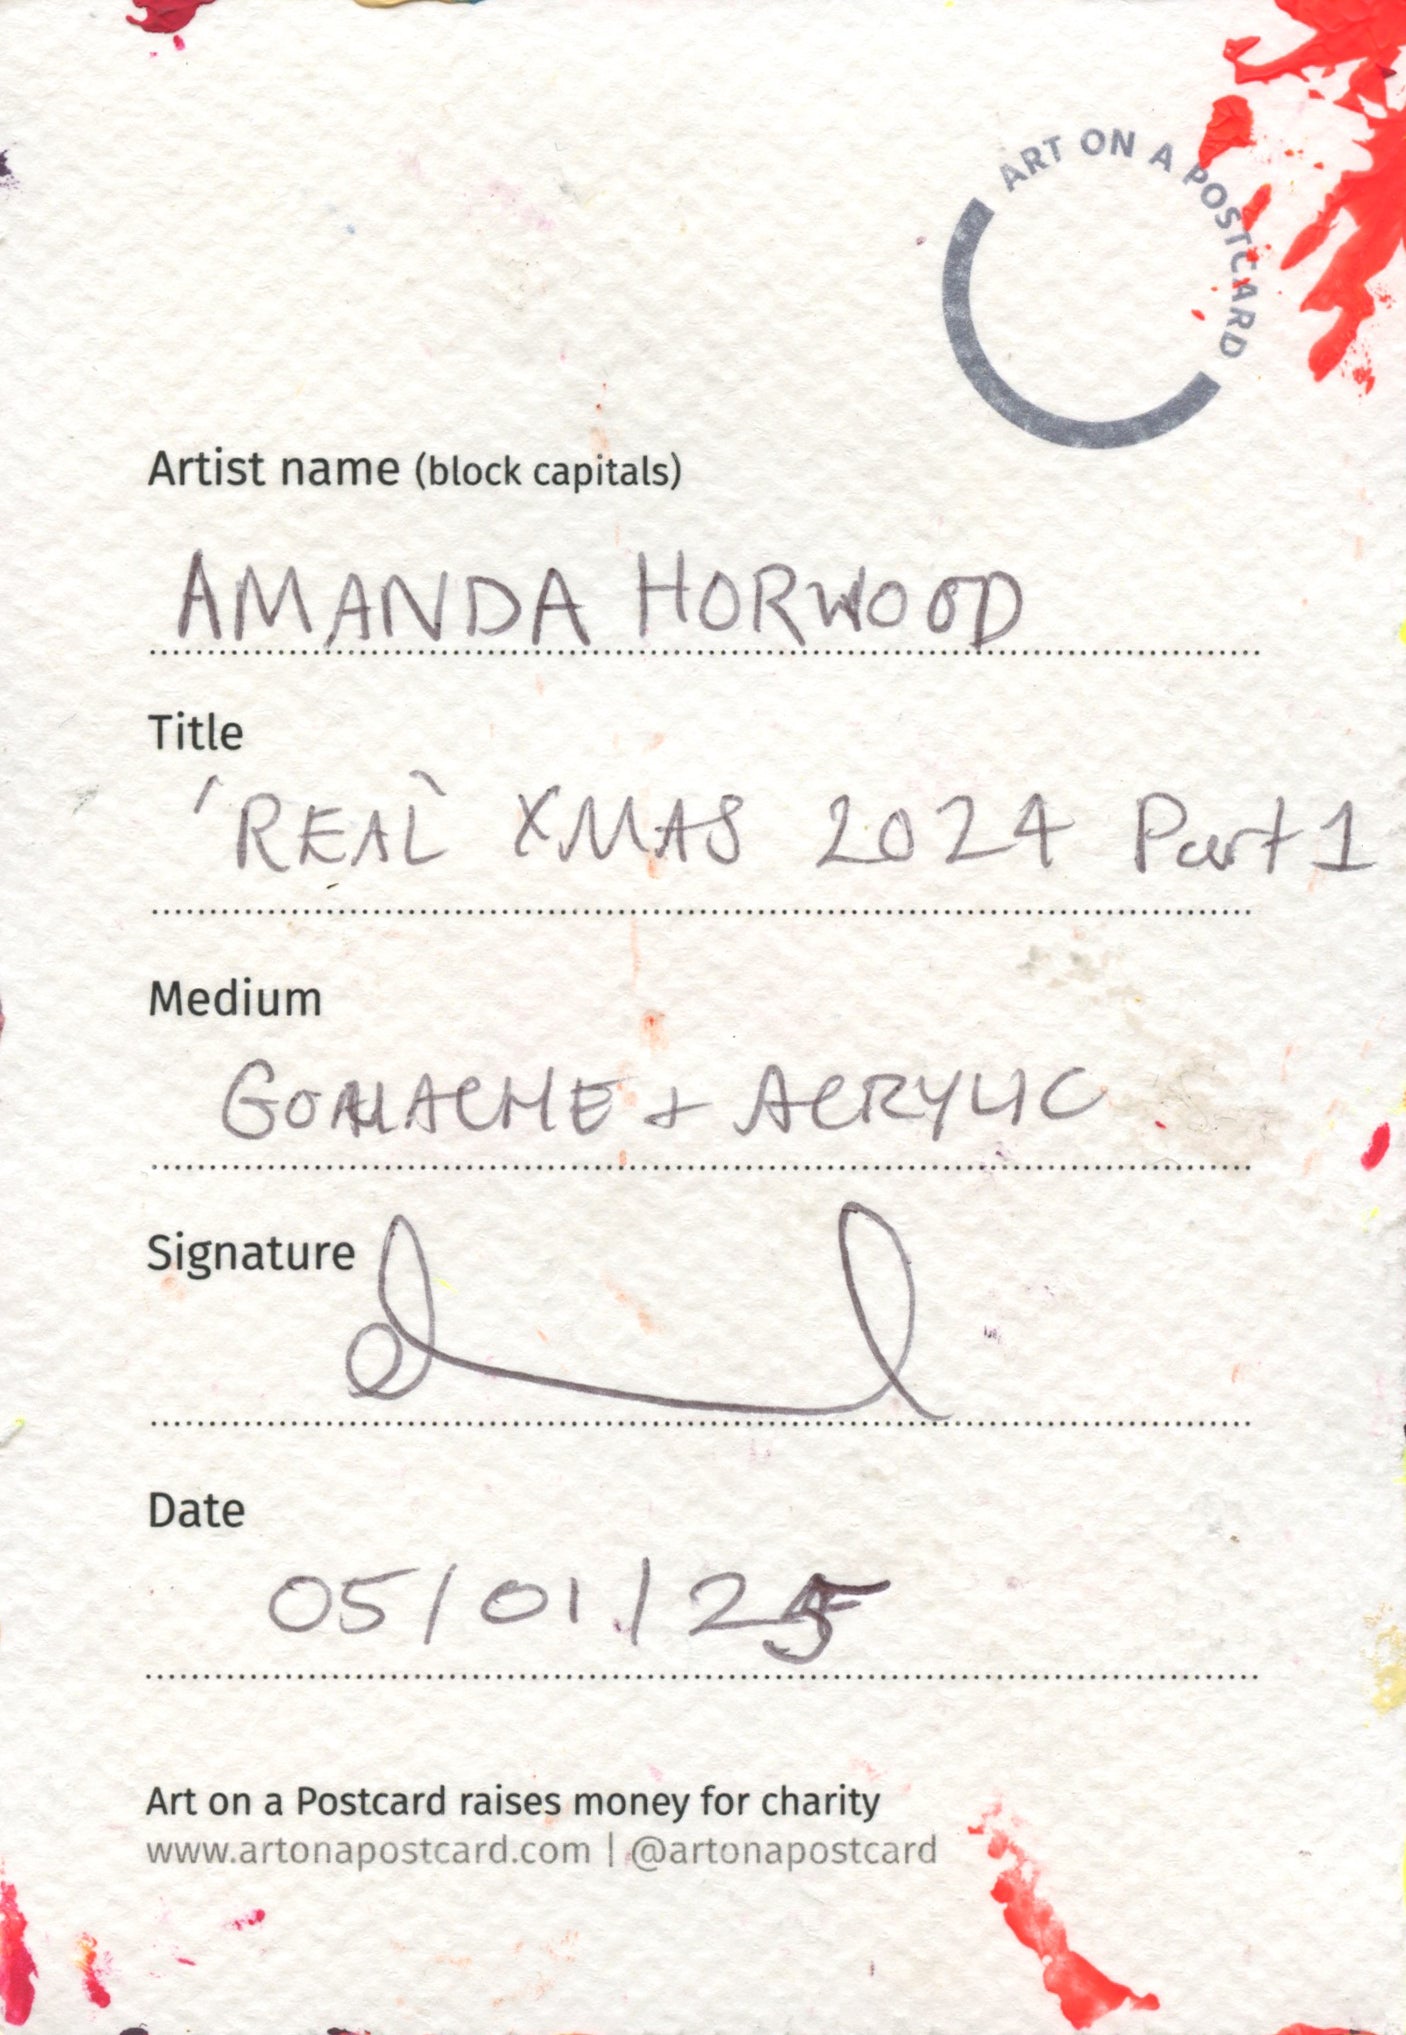 ART ON A POSTCARD
Artist name (block capitals)
AMANDA HORWOOD
Title
'REAL' XMAS 2024 Part 1
Medium
GOUACHE + ACRYLIC
Signature
Date
05/01/25
Art on a Postcard raises money for charity
www.artonapostcard.com | @artonapostcard